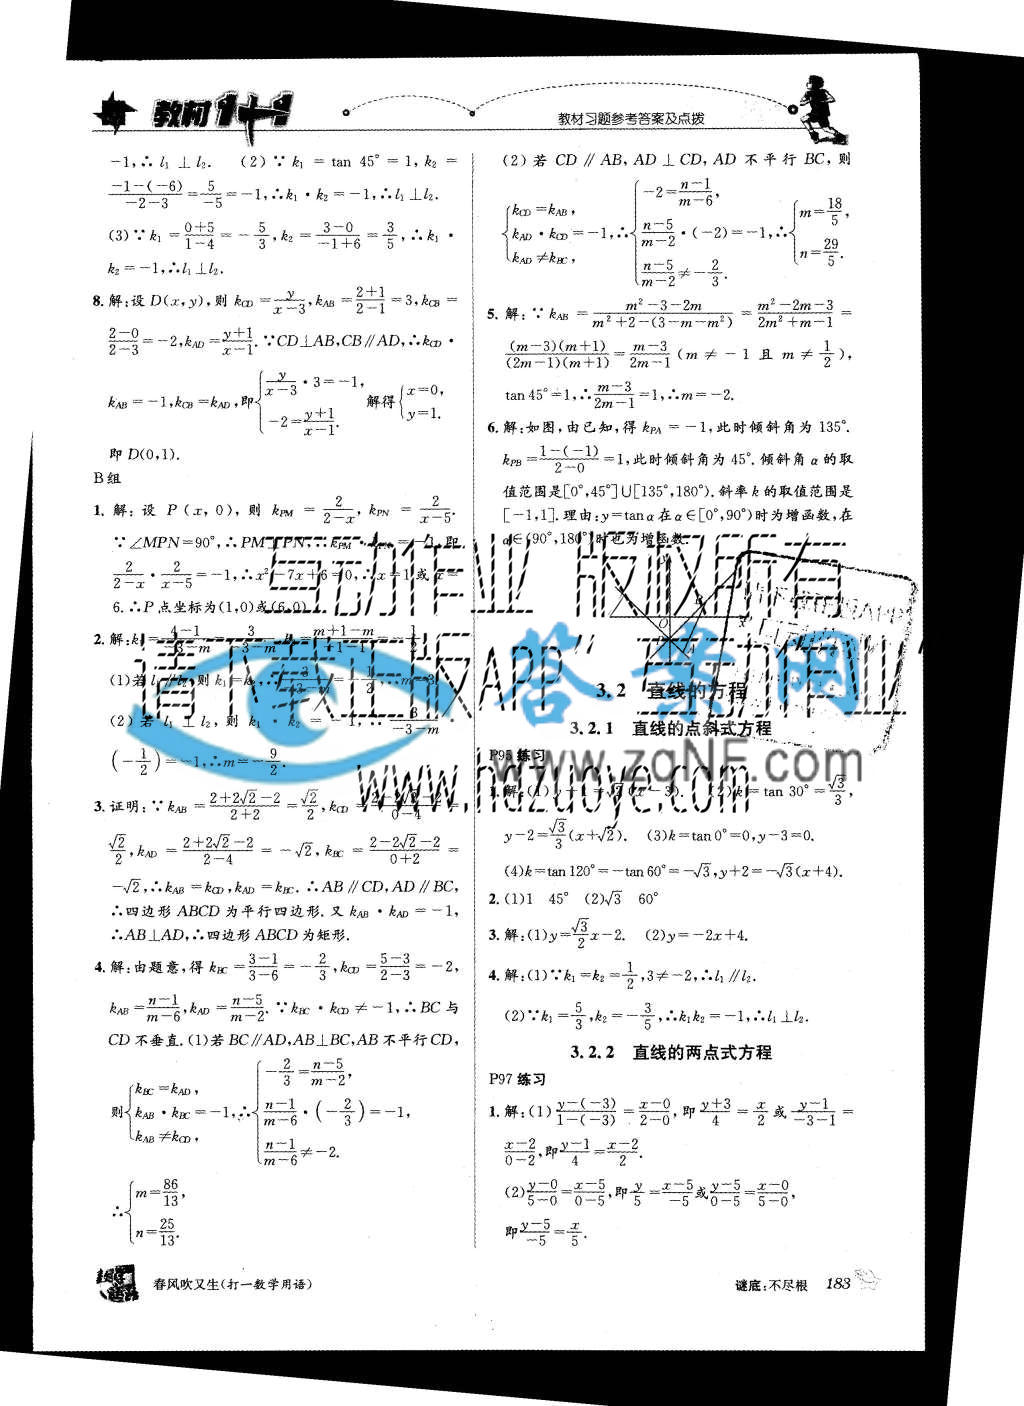 教材1+1
教材习题参考答案及点拨
-1,∴l₁⊥l₂. (2)∵k₁=tan 45°=1,k₂=
(-1-(-6))/(-2-3)=5/(-5)=-1,∴k₁·k₂=-1,∴l₁⊥l₂.
(3)∵k₁=(0+5)/(1-4)=-5/3,k₂=(3-0)/(-1+6)=3/5,∴k₁·
k₂=-1,∴l₁⊥l₂.
8.解:设D(x,y),则k_CD=y/(x-3),k_AB=(2+1)/(2-1)=3,k_CB=
(2-0)/(2-3)=-2,k_AD=(y+1)/(x-1).∵CD⊥AB,CB∥AD,∴k_CD·
k_AB=-1,k_CB=k_AD,即{y/(x-3)·3=-1, -2=(y+1)/(x-1). 解得{x=0, y=1.
即D(0,1).
B组
1.解:设P(x,0),则k_PM=2/(2-x),k_PN=2/(x-5).
∵∠MPN=90°,∴PM⊥PN,∴k_PM·k_PN=-1,即
2/(2-x)·2/(x-5)=-1,∴x²-7x+6=0,∴x=1或x=
6.∴P点坐标为(1,0)或(6,0)
2.解:
(1)若l₁∥l₂,则k₁=k₂,
(2)若l₁⊥l₂,则k₁·k₂=-1,
(-1/2)=-1,∴m=-9/2.
3.证明:∵k_AB=(2+2√2-2)/(2+2)=√2/2,k_CD=
√2/2,k_AD=(2+2√2-2)/(2-4)=-√2,k_BC=(2-2√2-2)/(0+2)=
-√2,∴k_AB=k_CD,k_AD=k_BC.∴AB∥CD,AD∥BC,
∴四边形ABCD为平行四边形.又k_AB·k_AD=-1,
∴AB⊥AD,∴四边形ABCD为矩形.
4.解:由题意,得k_BC=(3-1)/(3-6)=-2/3,k_CD=(5-3)/(2-3)=-2,
k_AB=(n-1)/(m-6),k_AD=(n-5)/(m-2).∵k_BC·k_CD≠-1,∴BC与
CD不垂直.(1)若BC∥AD,AB⊥BC,AB不平行CD,
则{k_BC=k_AD, k_AB·k_BC=-1, k_AB≠k_CD, ∴{-2/3=(n-5)/(m-2), (n-1)/(m-6)·(-2/3)=-1, (n-1)/(m-6)≠-2.
∴{m=86/13, n=25/13.
(2)若CD∥AB,AD⊥CD,AD不平行BC,则
{k_CD=k_AB, k_AD·k_CD=-1, k_AD≠k_BC, ∴{-2=(n-1)/(m-6), (n-5)/(m-2)·(-2)=-1, (n-5)/(m-2)≠-2/3. ∴{m=18/5, n=29/5.
5.解:∵k_AB=(m²-3-2m)/(m²+2-(3-m-m²))=(m²-2m-3)/(2m²+m-1)=
((m-3)(m+1))/((2m-1)(m+1))=(m-3)/(2m-1)(m≠-1且m≠1/2),
tan45°=1,∴(m-3)/(2m-1)=1,∴m=-2.
6.解:如图,由已知,得k_PA=-1,此时倾斜角为135°.
k_PB=(1-(-1))/(2-0)=1,此时倾斜角为45°.倾斜角α的取
值范围是[0°,45°]∪[135°,180°).斜率k的取值范围是
[-1,1].理由:y=tanα在α∈[0°,90°)时为增函数,在
α∈(90°,180°)时也为增函数.
3.2 直线的方程
3.2.1 直线的点斜式方程
P95练习
1.解:(1)y+1=√2(x-3). (2)k=tan 30°=√3/3,
y-2=√3/3(x+√2). (3)k=tan0°=0,y-3=0.
(4)k=tan120°=-tan60°=-√3,y+2=-√3(x+4).
2.(1)1 45° (2)√3 60°
3.解:(1)y=√3/2x-2. (2)y=-2x+4.
4.解:(1)∵k₁=k₂=1/2,3≠-2,∴l₁∥l₂.
(2)∵k₁=5/3,k₂=-3/5,∴k₁k₂=-1,∴l₁⊥l₂.
3.2.2 直线的两点式方程
P97练习
1.解:(1)(y-(-3))/(1-(-3))=(x-0)/(2-0),即(y+3)/4=x/2或(y-1)/(-3-1)=
(x-2)/(0-2),即(y-1)/4=(x-2)/2.
(2)(y-0)/(5-0)=(x-5)/(0-5),即y/5=(x-5)/(-5)或(y-5)/(0-5)=(x-0)/(5-0),
即(y-5)/(-5)=x/5.
春风吹又生(打一数学用语)
谜底:不尽根 183
互动作业 版权所有
请下载正版APP“互动作业”
www.hazuoye.com
答案网
www.zqNF.com